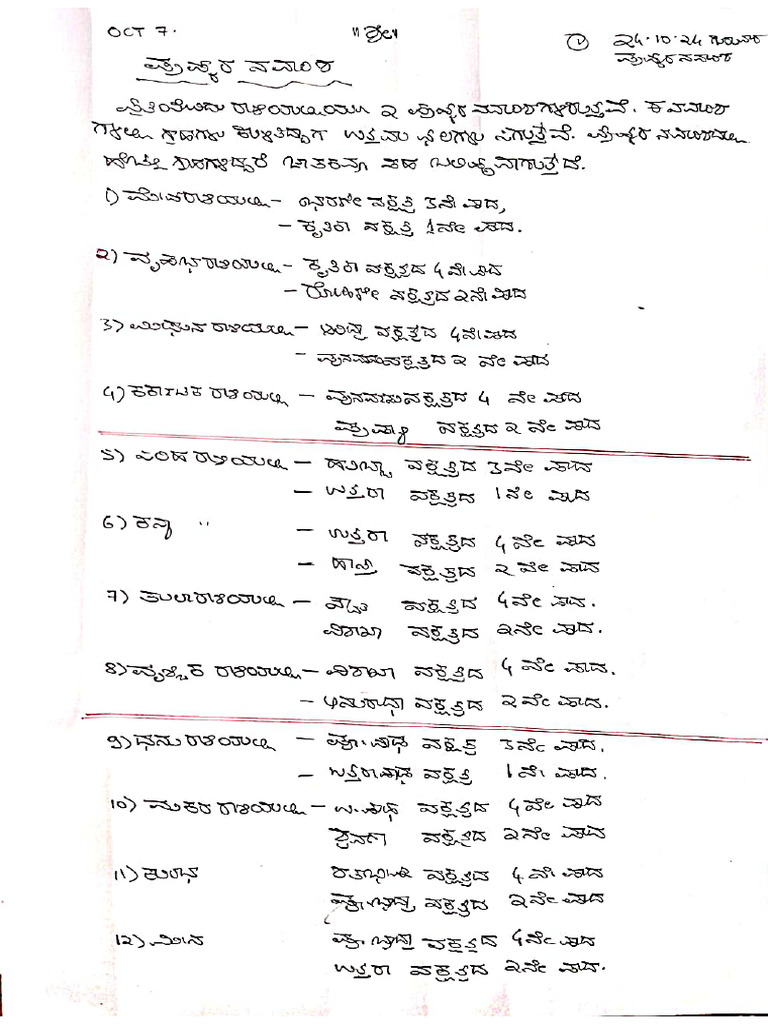 OCT 7.
"ಶ್ರೀ"
① 24.10.24 ಗುರುವಾರ
ಪುಷ್ಕರ ನವಾಂಶ
ಪುಷ್ಕರ ನವಾಂಶ
ಪ್ರತಿಯೊಂದು ರಾಶಿಯಲ್ಲಿಯೂ ೨ ಪುಷ್ಕರ ನವಾಂಶಗಳಿರುತ್ತವೆ. ಈ ನವಾಂಶ
ಗಳಲ್ಲಿ ಗ್ರಹಗಳು ಕುಳಿತಿದ್ದಾಗ ಉತ್ತಮ ಫಲಗಳು ಸಿಗುತ್ತವೆ. ಪುಷ್ಕರ ನವಾಂಶದಲ್ಲಿ
ಹೆಚ್ಚು ಗ್ರಹಗಳಿದ್ದರೆ ಜಾತಕವೂ ಸಹ ಬಲಿಷ್ಠವಾಗುತ್ತದೆ.
1) ಮೇಷರಾಶಿಯಲ್ಲಿ - ಭರಣೀ ನಕ್ಷತ್ರ 3ನೇ ಪಾದ,
- ಕೃತಿಕಾ ನಕ್ಷತ್ರ 1ನೇ ಪಾದ.
2) ವೃಷಭರಾಶಿಯಲ್ಲಿ - ಕೃತಿಕಾ ನಕ್ಷತ್ರದ 4ನೇ ಪಾದ
- ರೋಹಿಣೀ ನಕ್ಷತ್ರದ ೨ನೇ ಪಾದ
3) ಮಿಥುನ ರಾಶಿಯಲ್ಲಿ - ಆರಿದ್ರಾ ನಕ್ಷತ್ರದ 4ನೇ ಪಾದ
- ಪುನರ್ವಸು ನಕ್ಷತ್ರದ ೨ ನೇ ಪಾದ
4) ಕರ್ಕಾಟಕ ರಾಶಿಯಲ್ಲಿ - ಪುನರ್ವಸು ನಕ್ಷತ್ರದ 4 ನೇ ಪಾದ
ಪುಷ್ಯ ನಕ್ಷತ್ರದ ೨ ನೇ ಪಾದ
5) ಸಿಂಹ ರಾಶಿಯಲ್ಲಿ - ಹುಬ್ಬಾ ನಕ್ಷತ್ರದ 3ನೇ ಪಾದ
- ಉತ್ತರಾ ನಕ್ಷತ್ರದ 1ನೇ ಪಾದ
6) ಕನ್ಯ " - ಉತ್ತರಾ ನಕ್ಷತ್ರದ 4ನೇ ಪಾದ
- ಹಸ್ತಾ ನಕ್ಷತ್ರದ ೨ ನೇ ಪಾದ
7) ತುಲಾರಾಶಿಯಲ್ಲಿ - ಸ್ವಾತಿ ನಕ್ಷತ್ರದ 4ನೇ ಪಾದ.
ವಿಶಾಖಾ ನಕ್ಷತ್ರದ ೨ನೇ ಪಾದ.
8) ವೃಶ್ಚಿಕ ರಾಶಿಯಲ್ಲಿ - ವಿಶಾಖಾ ನಕ್ಷತ್ರದ 4 ನೇ ಪಾದ.
- ಅನುರಾಧಾ ನಕ್ಷತ್ರದ ೨ ನೇ ಪಾದ.
9) ಧನು ರಾಶಿಯಲ್ಲಿ - ಪೂ. ಷಾಢ ನಕ್ಷತ್ರ 3ನೇ ಪಾದ.
- ಉತ್ತರಾಷಾಢ ನಕ್ಷತ್ರ 1ನೇ ಪಾದ.
10) ಮಕರ ರಾಶಿಯಲ್ಲಿ - ಉ.ಷಾಢ ನಕ್ಷತ್ರದ 4ನೇ ಪಾದ
ಶ್ರವಣ ನಕ್ಷತ್ರದ ೨ನೇ ಪಾದ
11) ಕುಂಭ ಶತಾಭಿಷ ನಕ್ಷತ್ರದ 4ನೇ ಪಾದ
ಪೂ. ಭಾದ್ರಾ ನಕ್ಷತ್ರದ ೨ನೇ ಪಾದ.
12) ಮೀನ ಪೂ. ಭಾದ್ರಾ ನಕ್ಷತ್ರದ 4ನೇ ಪಾದ
ಉತ್ತರಾ ನಕ್ಷತ್ರದ ೨ನೇ ಪಾದ.